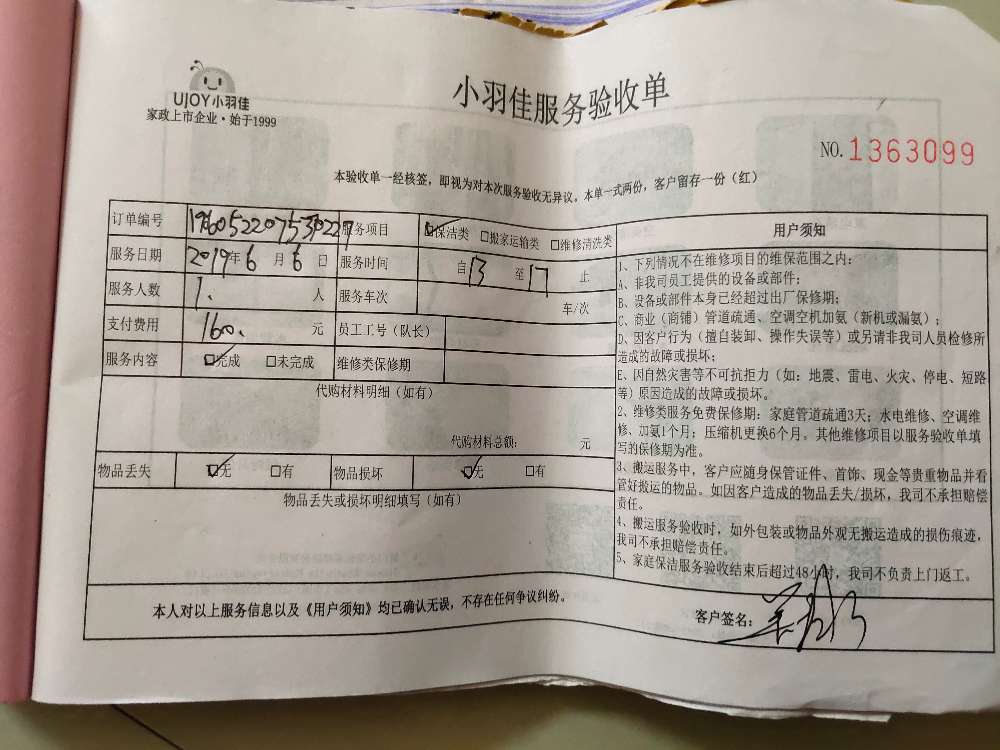 UJOY小羽佳
家政上市企业·始于1999
小羽佳服务验收单
NO.1363099
本验收单一经核签，即视为对本次服务验收无异议。本单一式两份，客户留存一份（红）
订单编号 服务项目 保洁类 □搬家运输类 □维修清洗类
服务日期 2019年6月6日 服务时间 自13至17止
服务人数 1. 人 服务车次 车/次
支付费用 160. 元 员工工号（队长）
服务内容 完成 □未完成 维修类保修期
代购材料明细（如有）
代购材料总额： 元
物品丢失 无 □有 物品损坏 无 □有
物品丢失或损坏明细填写（如有）
用户须知
1、下列情况不在维修项目的维保范围之内：
A、非我司员工提供的设备或部件；
B、设备或部件本身已经超过出厂保修期；
C、商业（商铺）管道疏通、空调空机加氨（新机或漏氨）；
D、因客户行为（擅自装卸、操作失误等）或另请非我司人员检修所
造成的故障或损坏；
E、因自然灾害等不可抗拒力（如：地震、雷电、火灾、停电、短路
等）原因造成的故障或损坏。
2、维修类服务免费保修期：家庭管道疏通3天；水电维修、空调维
修、加氨1个月；压缩机更换6个月。其他维修项目以服务验收单填
写的保修期为准。
3、搬运服务中，客户应随身保管证件、首饰、现金等贵重物品并看
管好搬运的物品。如因客户造成的物品丢失/损坏，我司不承担赔偿
责任。
4、搬运服务验收时，如外包装或物品外观无搬运造成的损伤痕迹，
我司不承担赔偿责任。
5、家庭保洁服务验收结束后超过48小时，我司不负责上门返工。
本人对以上服务信息以及《用户须知》均已确认无误，不存在任何争议纠纷。
客户签名：